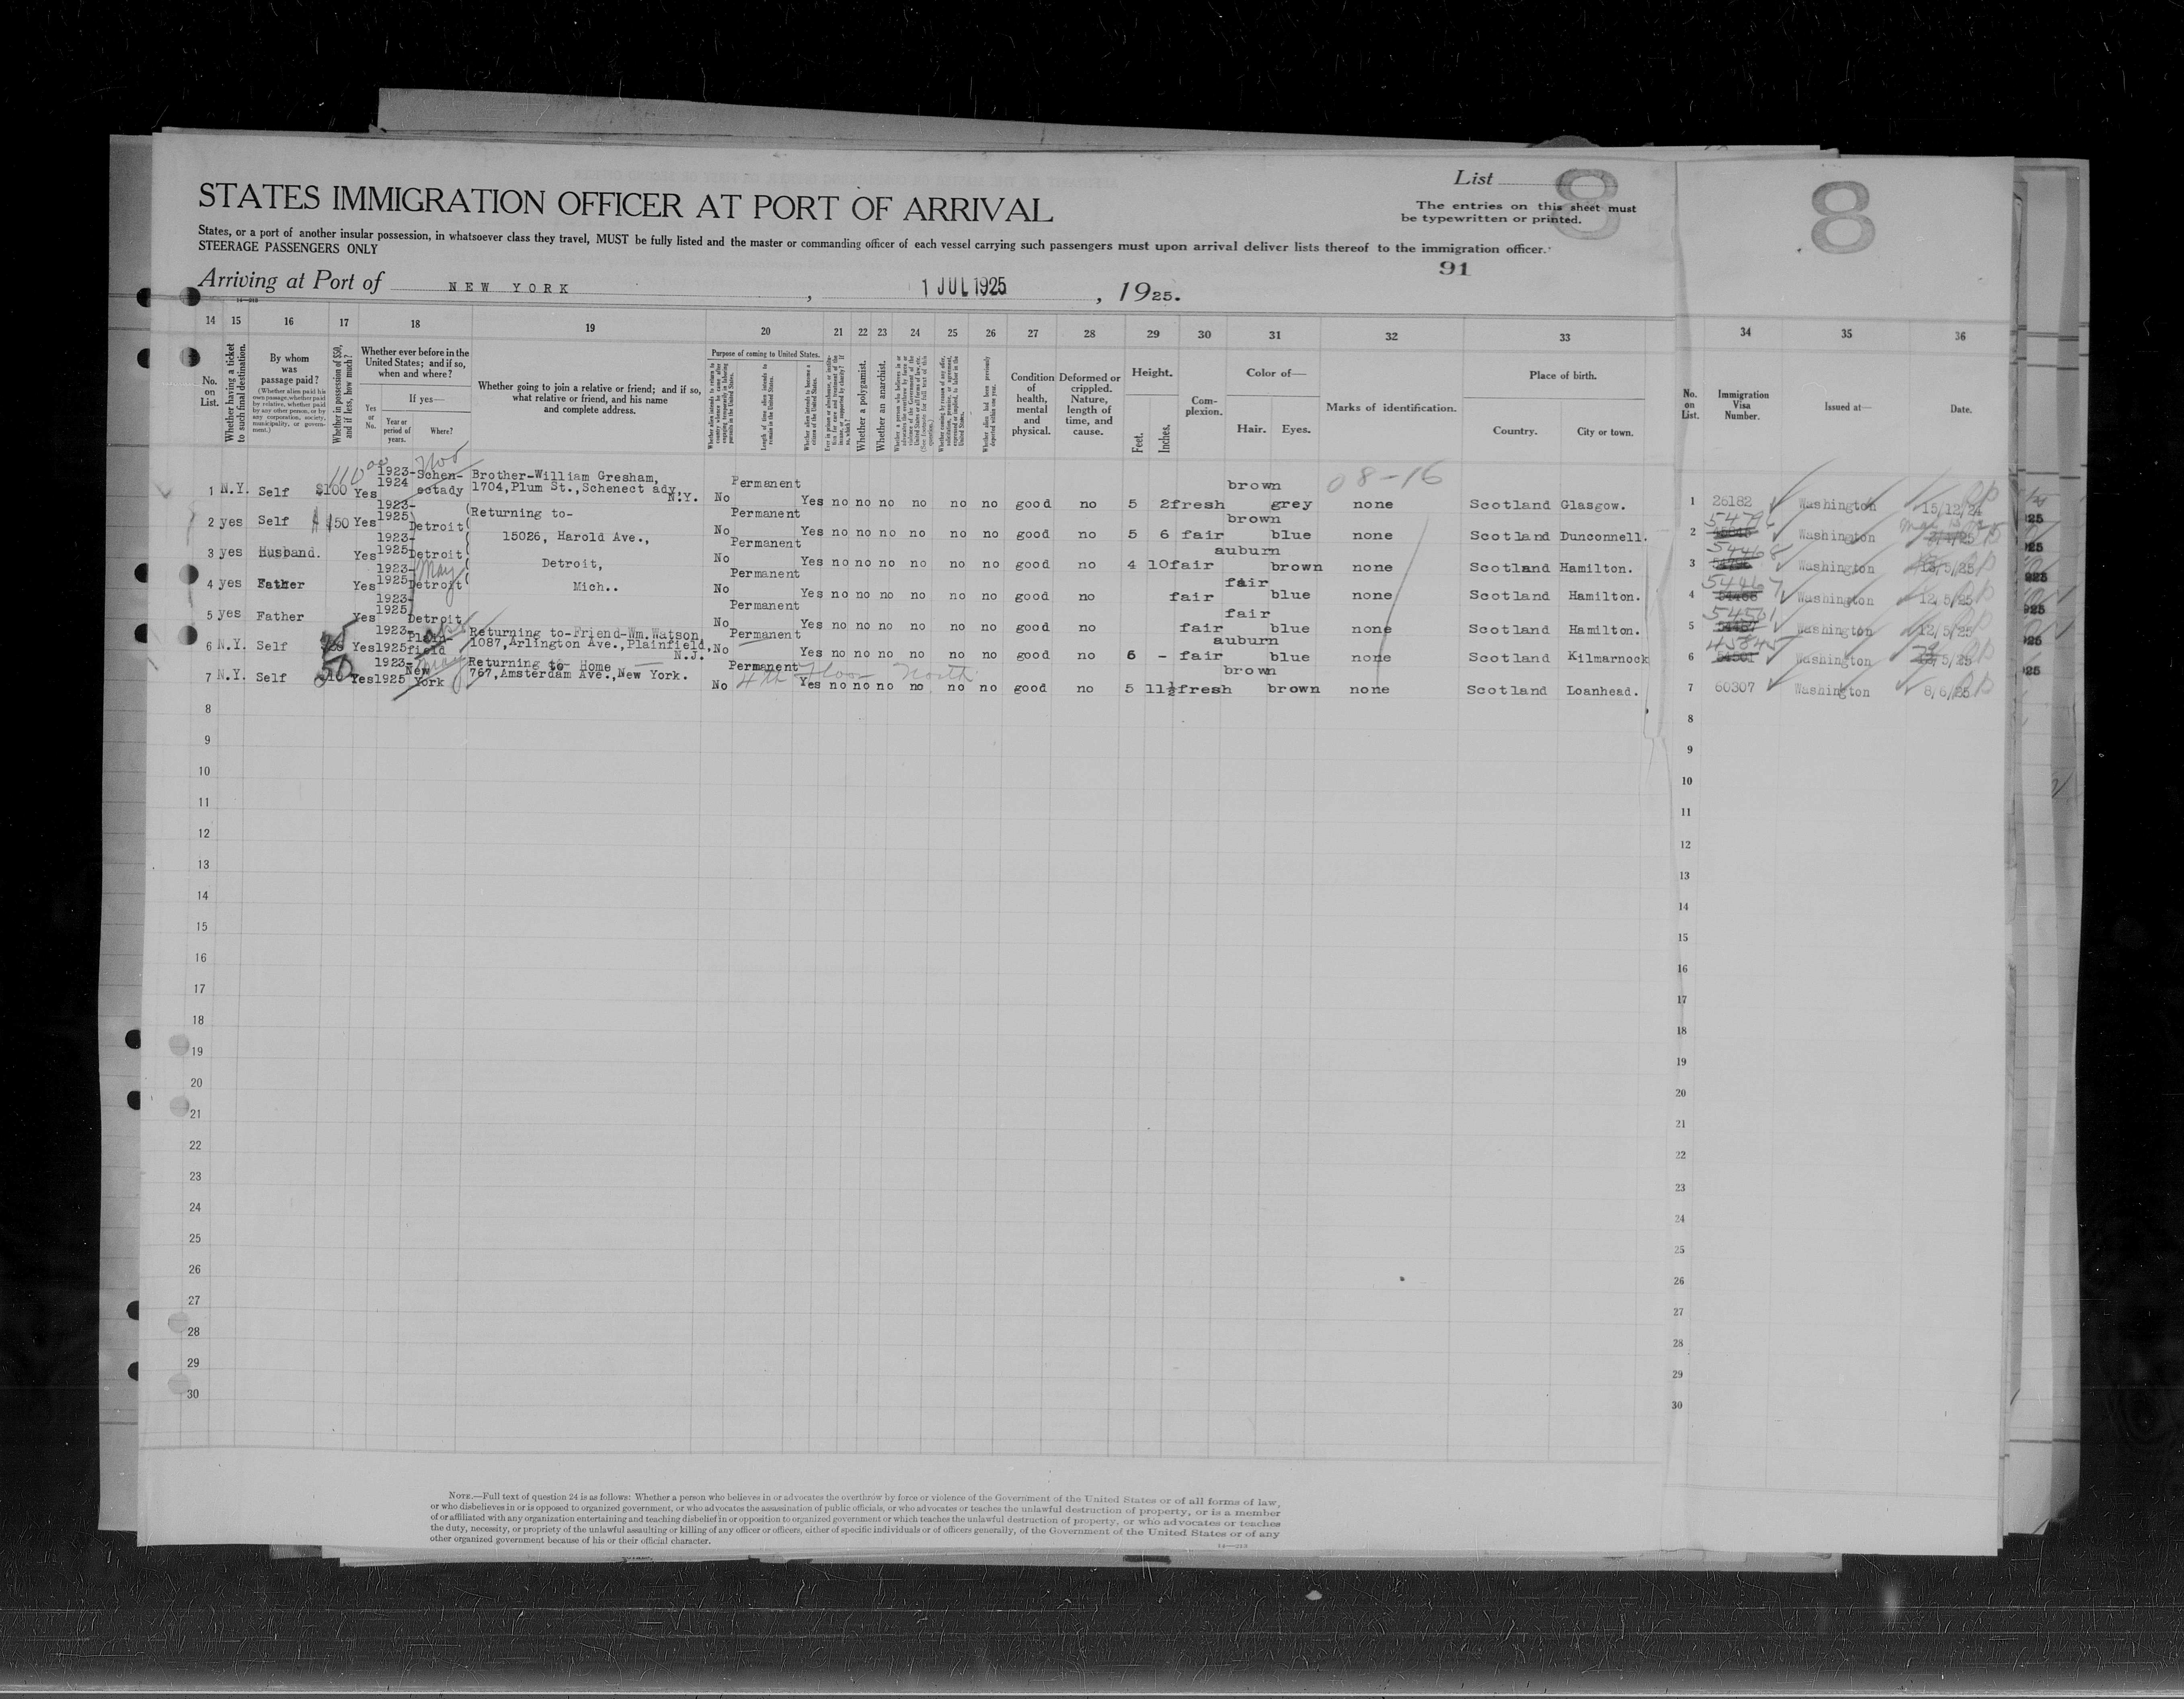 List 8
8
STATES IMMIGRATION OFFICER AT PORT OF ARRIVAL
The entries on this sheet must
be typewritten or printed.
States, or a port of another insular possession, in whatsoever class they travel, MUST be fully listed and the master or commanding officer of each vessel carrying such passengers must upon arrival deliver lists thereof to the immigration officer.
STEERAGE PASSENGERS ONLY
91
Arriving at Port of NEW YORK, 1 JUL 1925, 1925.
14 15 16 17 18 19 20 21 22 23 24 25 26 27 28 29 30 31 32 33 34 35 36
No. on List.
Whether having a ticket to such final destination.
By whom was passage paid?
(Whether alien paid his own passage, whether paid by relative, whether paid by any other person, or by any corporation, society, municipality, or government.)
Whether in possession of $50, and if less, how much?
Whether ever before in the United States; and if so, when and where?
Yes or No.
If yes—
Year or period of years.
Where?
Whether going to join a relative or friend; and if so, what relative or friend, and his name and complete address.
Purpose of coming to United States.
Length of time alien intends to remain in the United States.
Whether alien intends to become a citizen of the United States.
Whether a polygamist.
Whether an anarchist.
Condition of health, mental and physical.
Deformed or crippled. Nature, length of time, and cause.
Height.
Feet.
Inches.
Complexion.
Color of—
Hair.
Eyes.
Marks of identification.
Place of birth.
Country.
City or town.
No. on List.
Immigration Visa Number.
Issued at—
Date.
08-16
1 N.Y. Self $100 Yes 1923-1924 Schenectady Brother-William Gresham, 1704,Plum St.,Schenectady, N.Y. No Permanent Yes no no no no no no good no 5 2 fresh brown grey none Scotland Glasgow. 1 26182 Washington 15/12/24
2 yes Self $150 Yes 1923-1925 Detroit Returning to- No Permanent Yes no no no no no no good no 5 6 fair brown blue none Scotland Dunconnell. 2 Washington
3 yes Husband. Yes 1923-1925 Detroit 15026, Harold Ave., No Permanent Yes no no no no no no good no 4 10 fair auburn brown none Scotland Hamilton. 3 54468 Washington
4 yes Father Yes 1923-1925 Detroit Detroit, No Permanent Yes no no no no no no good no fair fair blue none Scotland Hamilton. 4 54467 Washington 12/5/25
5 yes Father Yes 1923-1925 Detroit Mich.. No Permanent Yes no no no no no no good no fair fair blue none Scotland Hamilton. 5 54501 Washington 12/5/25
6 N.Y. Self Yes 1923-1925 Plainfield Returning to-Friend-Wm.Watson 1087,Arlington Ave.,Plainfield, N.J. No Permanent Yes no no no no no no good no 6 - fair auburn blue none Scotland Kilmarnock 6 45845 Washington
7 N.Y. Self 50 Yes 1923-1925 New York Returning to- Home 767,Amsterdam Ave.,New York. No Permanent 4th Floor North Yes no no no no no no good no 5 11½ fresh brown brown none Scotland Loanhead. 7 60307 Washington 8/6/25
8 8
9 9
10 10
11 11
12 12
13 13
14 14
15 15
16 16
17 17
18 18
19 19
20 20
21 21
22 22
23 23
24 24
25 25
26 26
27 27
28 28
29 29
30 30
NOTE.—Full text of question 24 is as follows: Whether a person who believes in or advocates the overthrow by force or violence of the Government of the United States or of all forms of law,
or who disbelieves in or is opposed to organized government, or who advocates the assassination of public officials, or who advocates or teaches the unlawful destruction of property, or is a member
of or affiliated with any organization entertaining and teaching disbelief in or opposition to organized government or which teaches the unlawful destruction of property, or who advocates or teaches
the duty, necessity, or propriety of the unlawful assaulting or killing of any officer or officers, either of specific individuals or of officers generally, of the Government of the United States or of any
other organized government because of his or their official character.
14—213